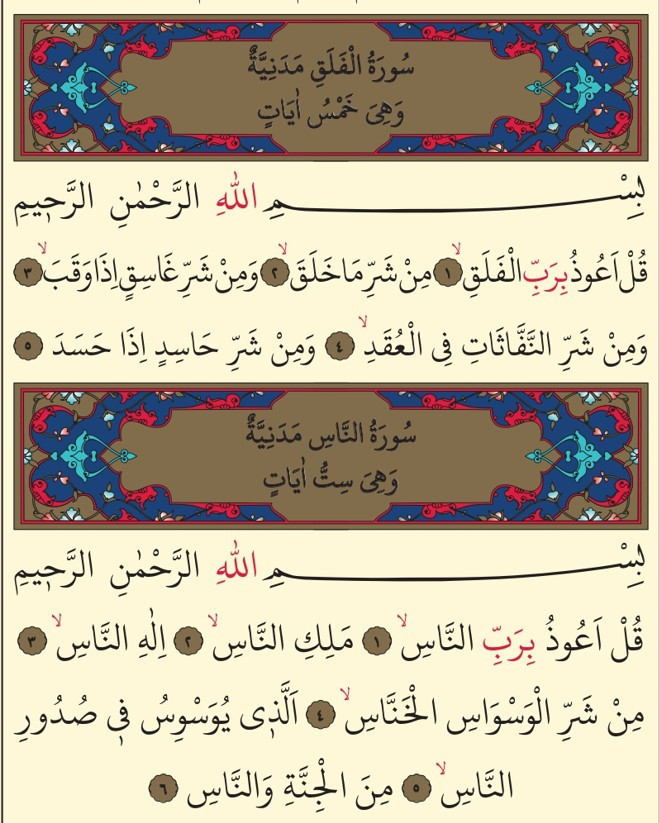 سُورَةُ الْفَلَقِ مَدَنِيَّةٌ
وَهِىَ خَمْسُ اٰيَاتٍ
بِسْمِ اللّٰهِ الرَّحْمٰنِ الرَّحٖيمِ
قُلْ اَعُوذُ بِرَبِّ الْفَلَقِۙ ١ مِنْ شَرِّ مَا خَلَقَۙ ٢ وَمِنْ شَرِّ غَاسِقٍ اِذَا وَقَبَۙ ٣
وَمِنْ شَرِّ النَّفَّاثَاتِ فِى الْعُقَدِۙ ٤ وَمِنْ شَرِّ حَاسِدٍ اِذَا حَسَدَ ٥
سُورَةُ النَّاسِ مَدَنِيَّةٌ
وَهِىَ سِتُّ اٰيَاتٍ
بِسْمِ اللّٰهِ الرَّحْمٰنِ الرَّحٖيمِ
قُلْ اَعُوذُ بِرَبِّ النَّاسِۙ ١ مَلِكِ النَّاسِۙ ٢ اِلٰهِ النَّاسِۙ ٣
مِنْ شَرِّ الْوَسْوَاسِ الْخَنَّاسِۙ ٤ اَلَّذٖى يُوَسْوِسُ فٖى صُدُورِ
النَّاسِۙ ٥ مِنَ الْجِنَّةِ وَالنَّاسِ ٦